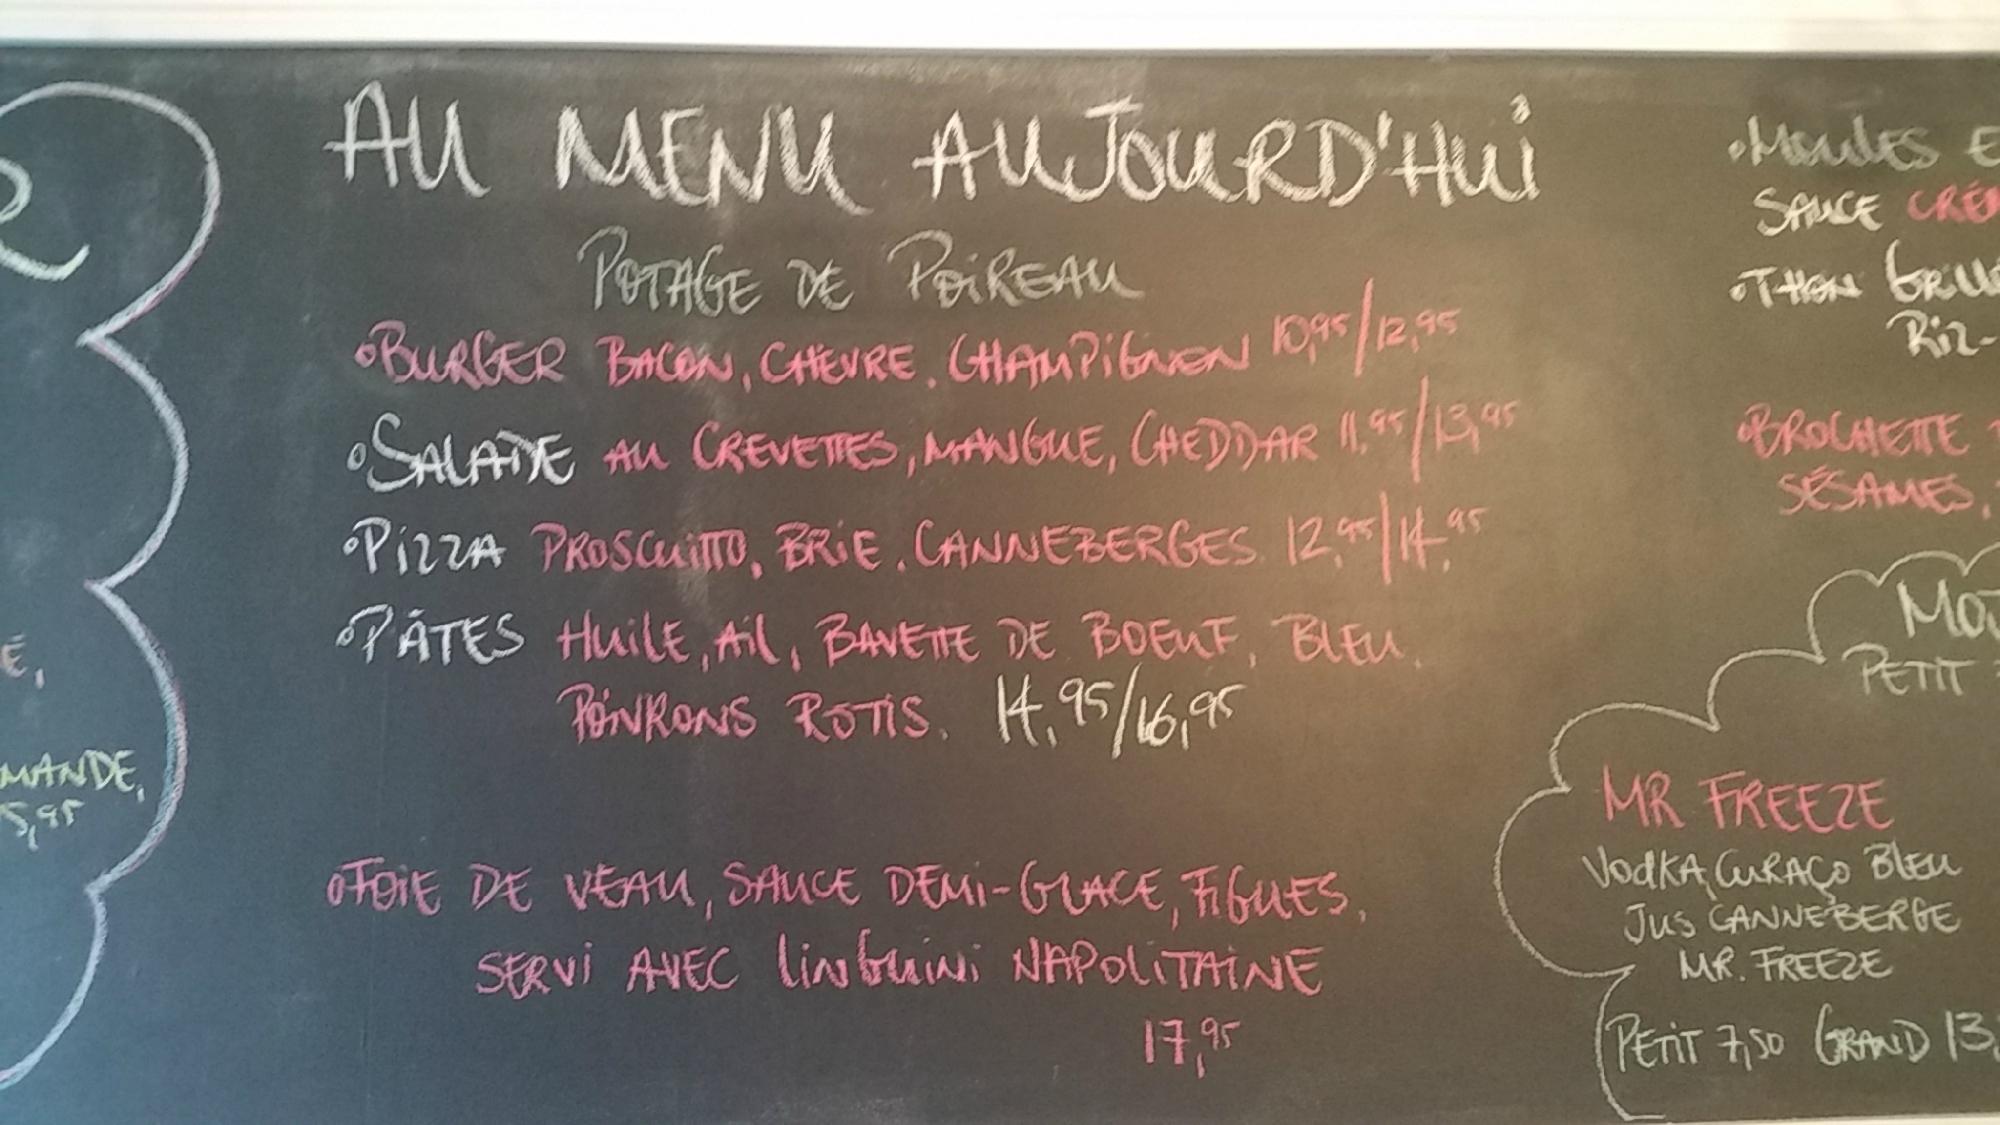 AU MENU AUJOURD'HUI
POTAGE DE POIREAU
BURGER BACON, CHÈVRE, CHAMPIGNON 10,95/12,95
SALADE AU CREVETTES, MANGUE, CHEDDAR 11,95/13,95
PIZZA PROSCUITTO, BRIE, CANNEBERGES 12,95/14,95
PÂTES HUILE, AIL, BAVETTE DE BOEUF, BLEU,
POIVRONS ROTIS. 14,95/16,95
FOIE DE VEAU, SAUCE DEMI-GLACE, FIGUES,
SERVI AVEC LINGUINI NAPOLITAINE
17,95
MOULES E
SAUCE CRÉM
THON GRILL
RIZ-
BROCHETTE
SÉSAMES,
MO
PETIT
MR FREEZE
VODKA, CURAÇO BLEU
JUS CANNEBERGE
MR. FREEZE
PETIT 7,50 GRAND 13,
É,
MANDE,
5,95